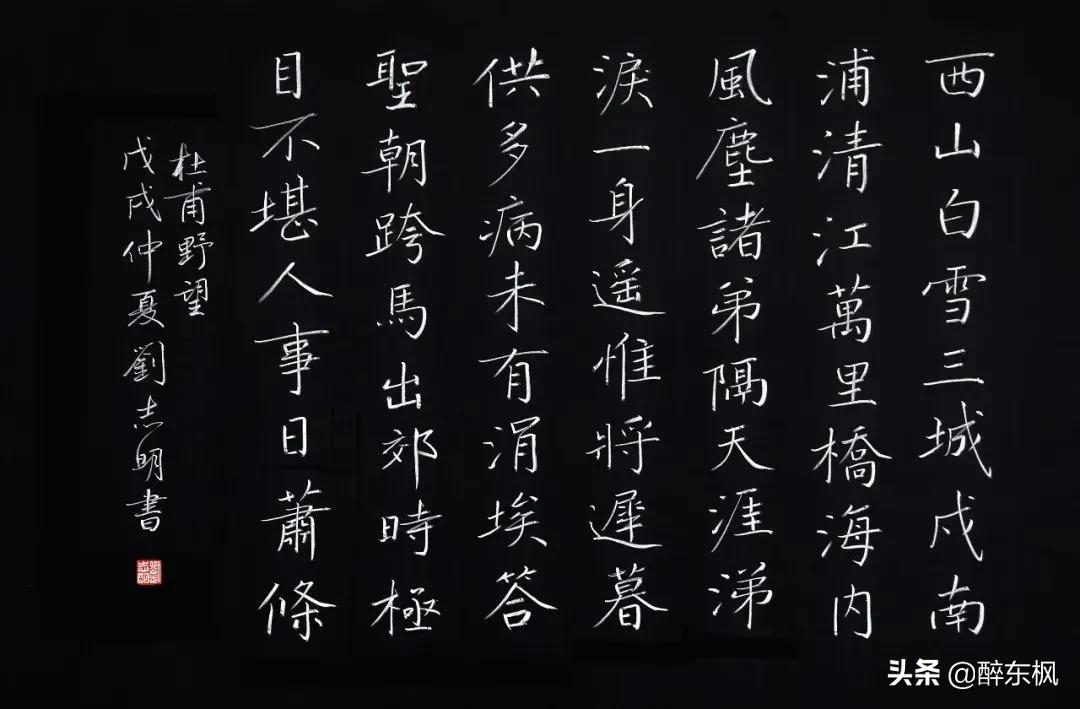 西山白雪三城戍南
浦清江萬里橋海内
風塵諸弟隔天涯涕
淚一身遥惟將遲暮
供多病未有涓埃答
聖朝跨馬出郊時極
目不堪人事日蕭條
杜甫野望
戊戌仲夏劉志明書
头条 @醉东枫